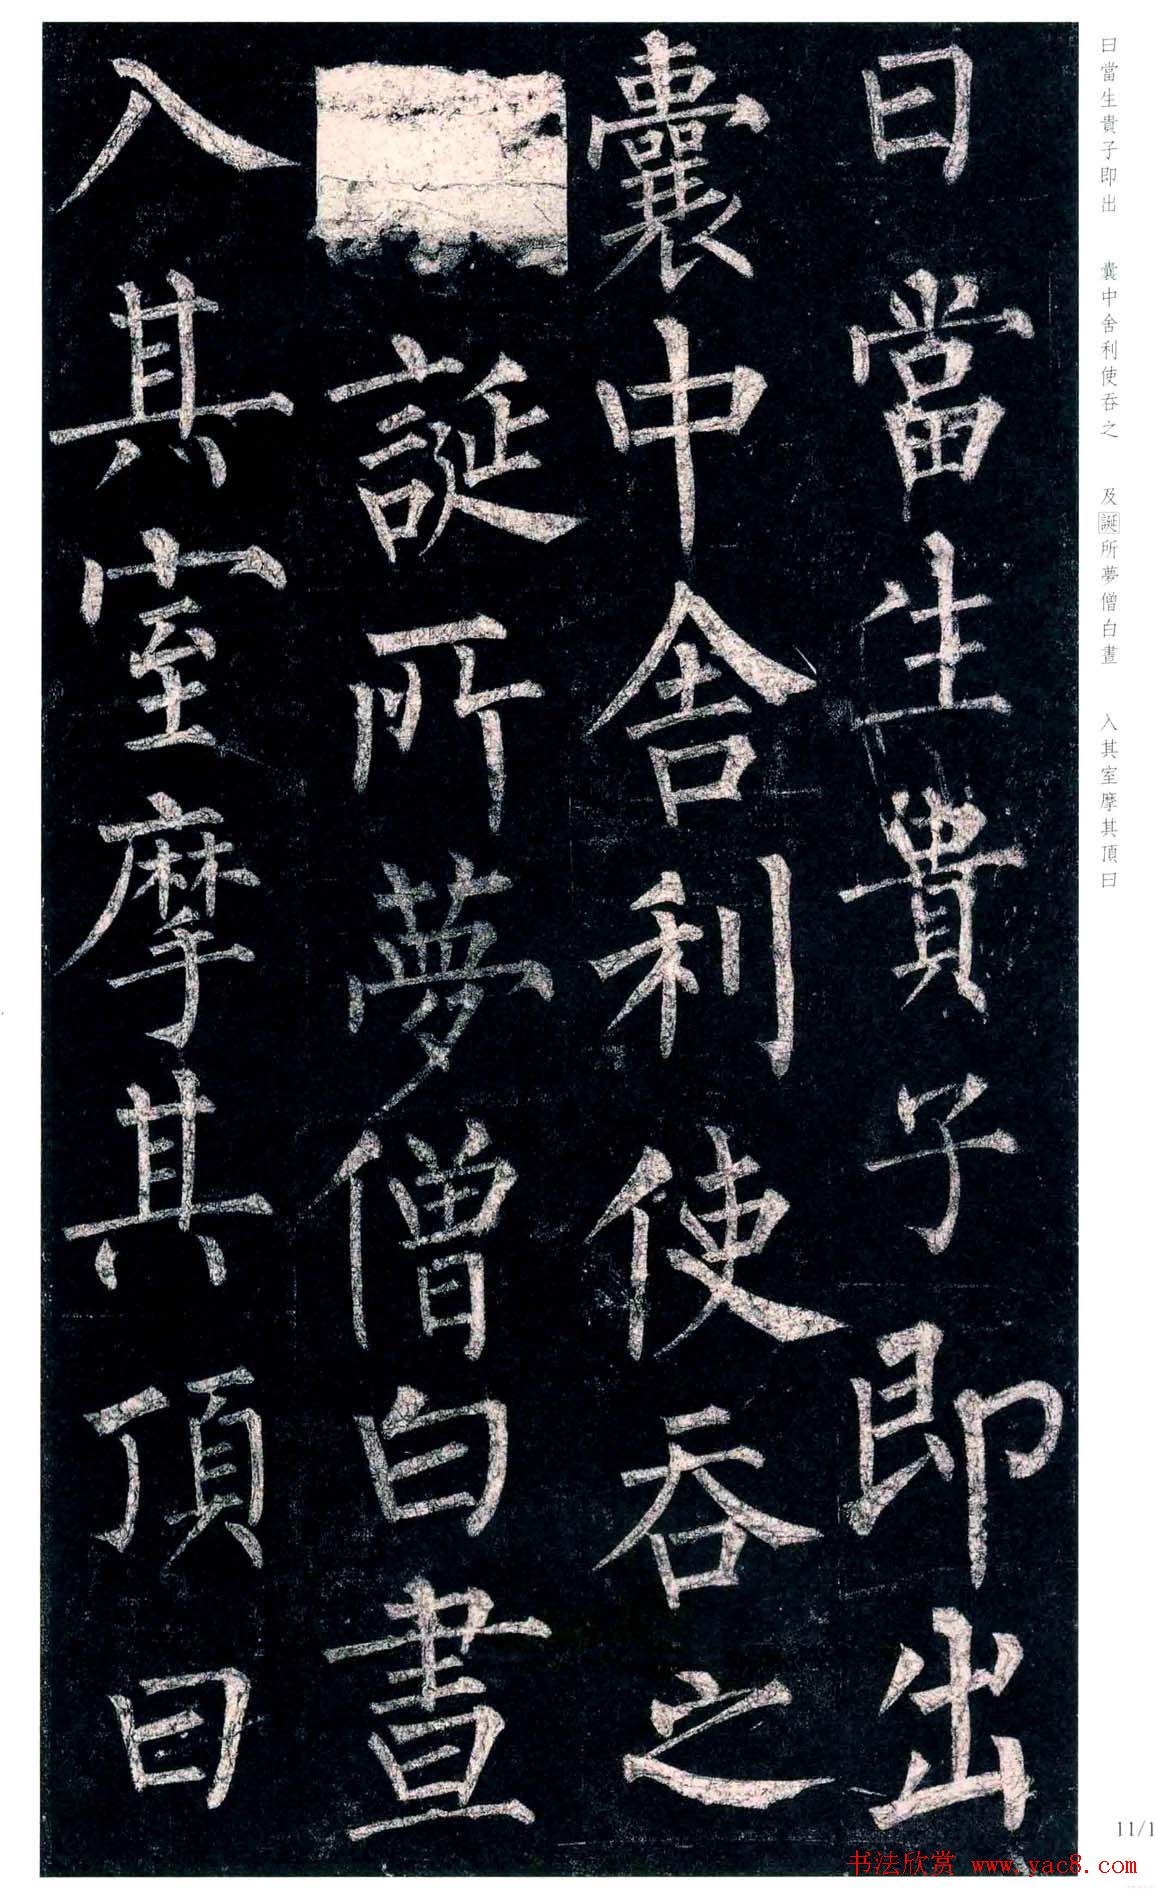 曰當生貴子即出
囊中舍利使吞之
誕所夢僧白晝
入其室摩其頂曰
曰當生貴子即出 囊中舍利使吞之 及誕所夢僧白晝 入其室摩其頂曰
11/1
书法欣赏 www.yac8.com